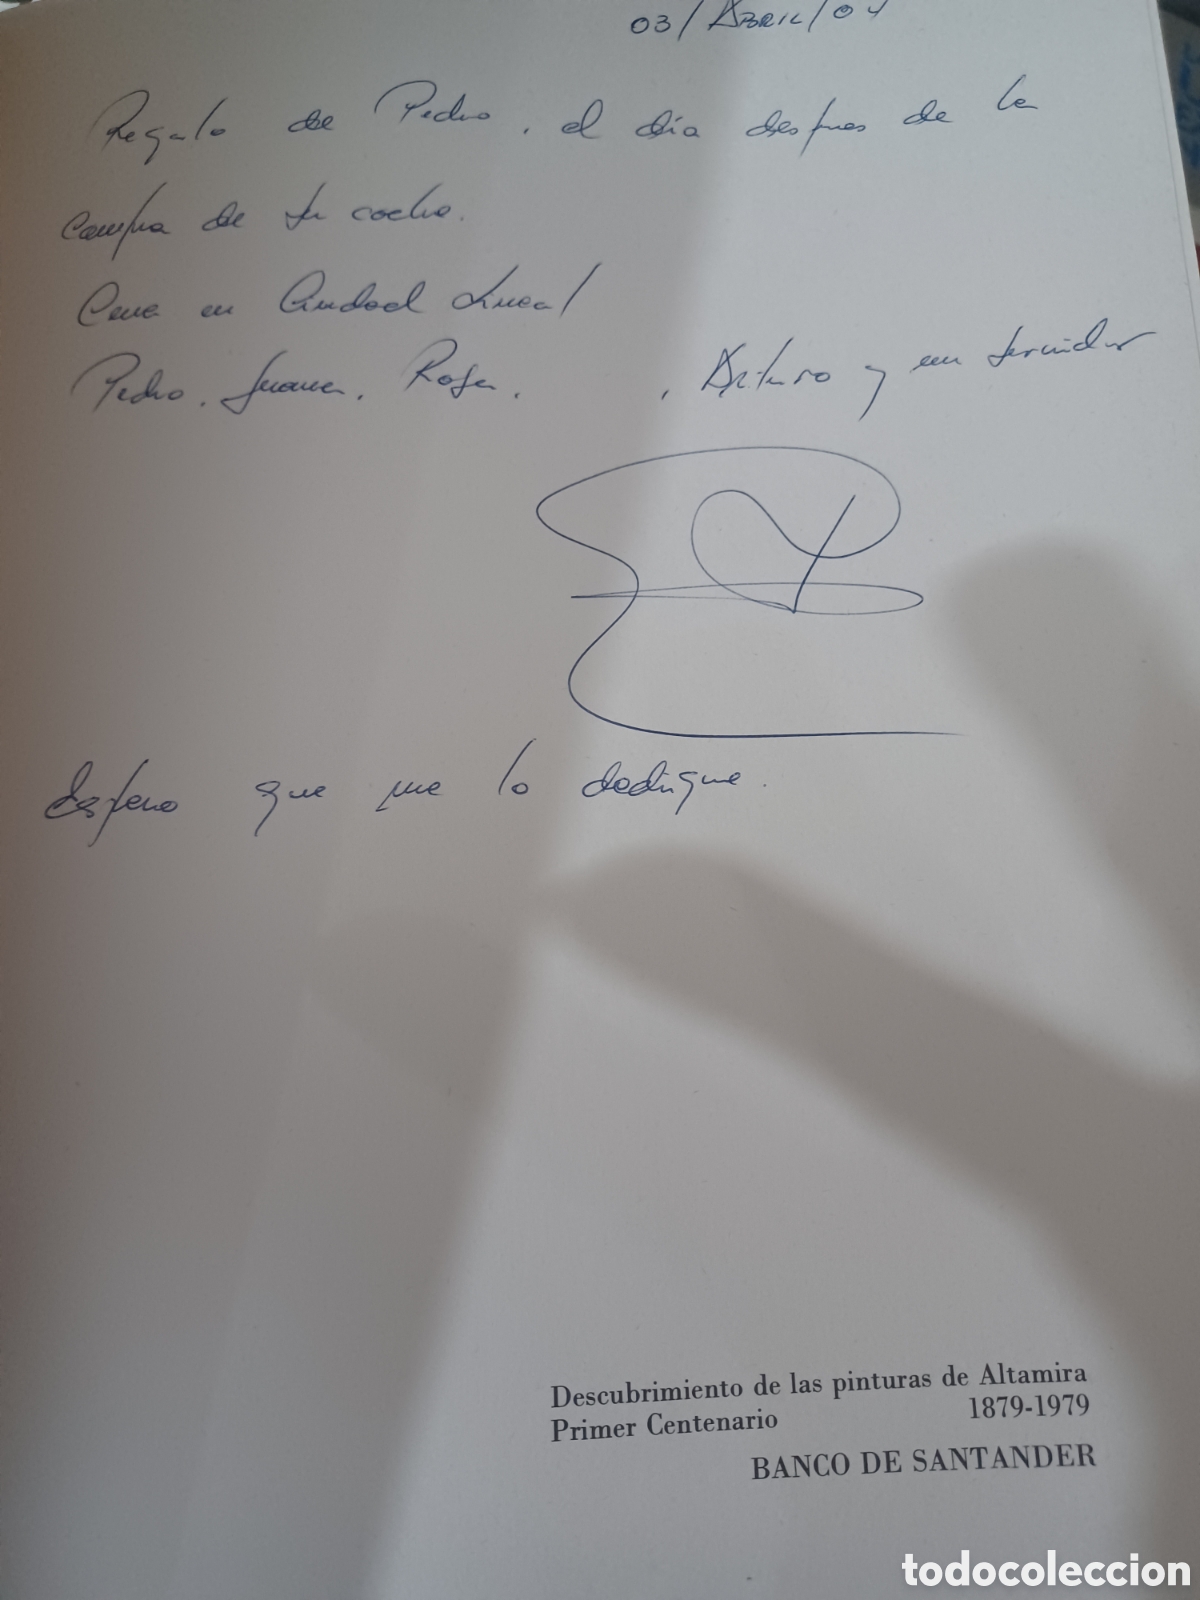 03/ABRIL/04
Regalo de Pedro, el día despues de la
compra de su coche.
Cena en Ciudad Lineal
Pedro, Juana, Rosa, , Arturo y un servidor
Espero que me lo dedique.
Descubrimiento de las pinturas de Altamira
Primer Centenario 1879-1979
BANCO DE SANTANDER
todocoleccion